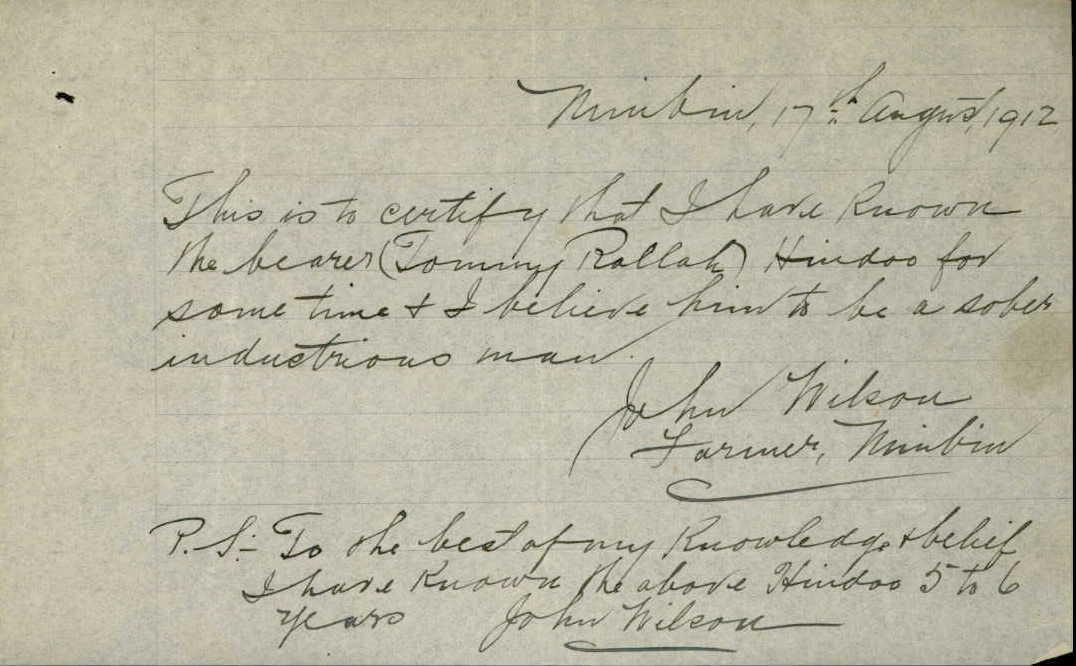 Nimbin, 17th August, 1912
This is to certify that I have known
the bearer (Tommy Rallah) Hindoo for
some time & I believe him to be a sober
industrious man.
John Wilson
Farmer, Nimbin
P.S:- To the best of my knowledge & belief
I have known the above Hindoo 5 to 6
years John Wilson